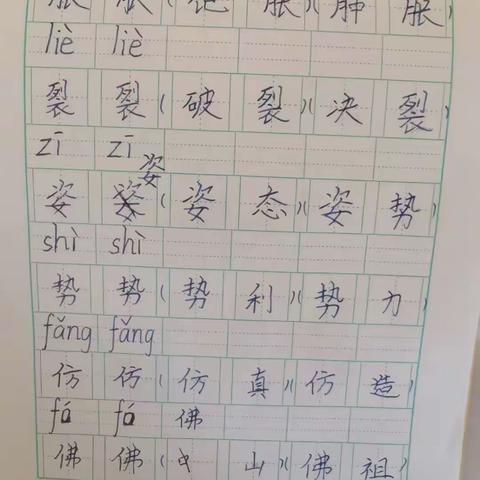 胀 胀 (饱 胀)(肿 胀)
liè liè
裂 裂 (破 裂)(决 裂)
zī zī 姿
姿 姿 (姿 态)(姿 势)
shì shì
势 势 (势 利)(势 力)
fǎng fǎng
仿 仿 (仿 真)(仿 造)
fó fó 佛
佛 佛 ( 山)(佛 祖)